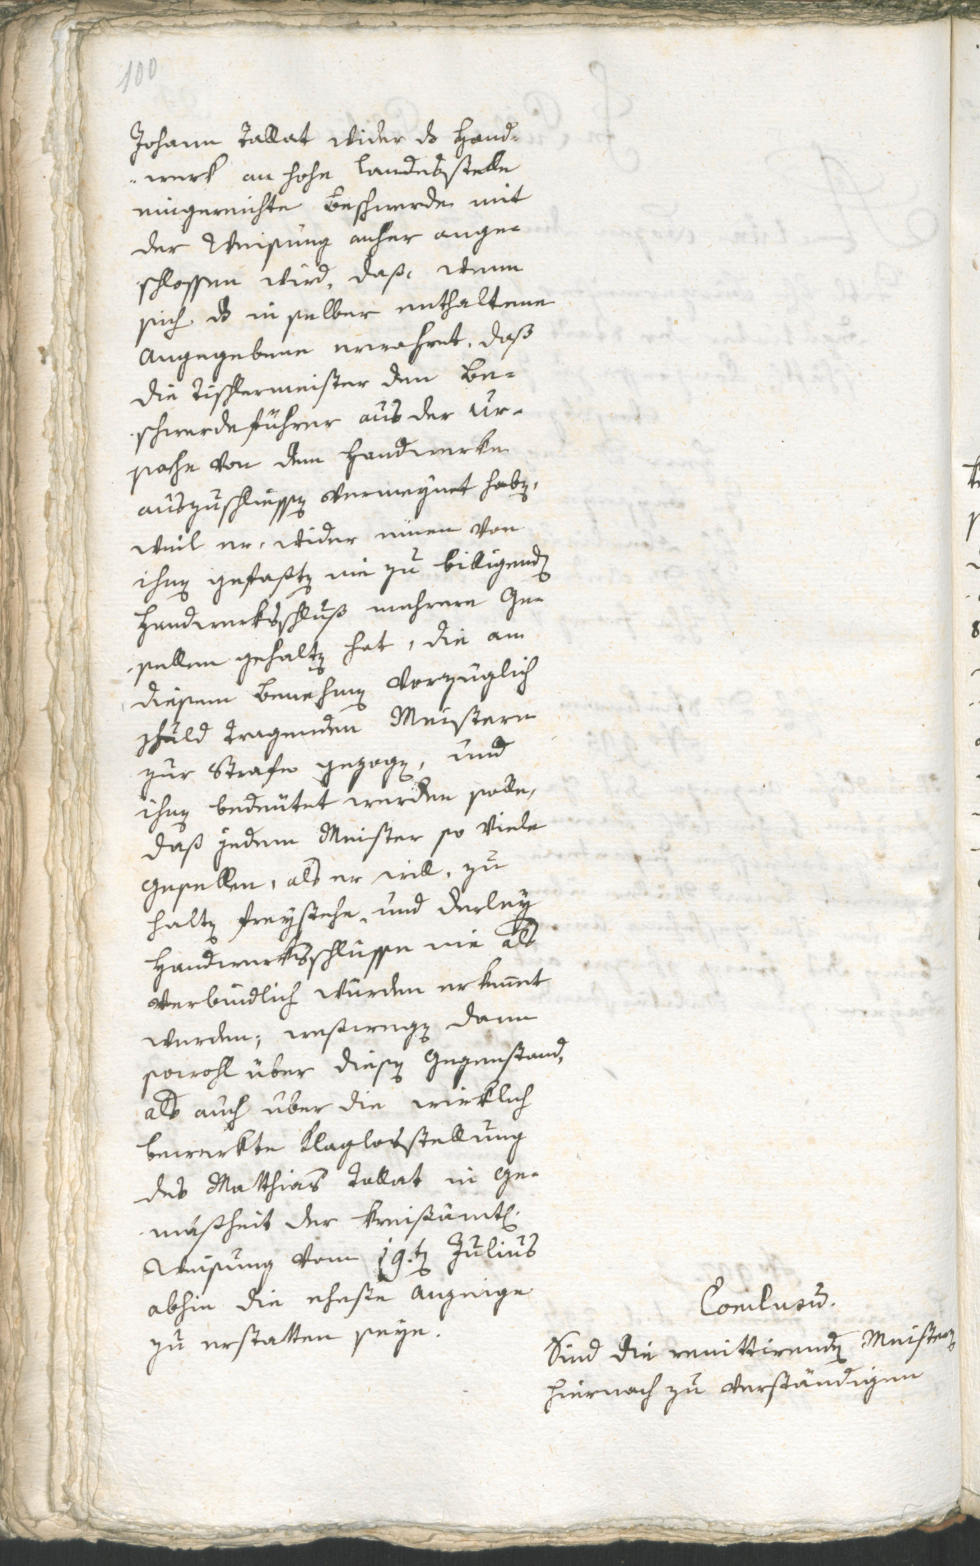 100
Johann Tallat wider ds Hand-
-werk an hohe Landesstelle
eingereichte Beschwerde mit
der Weisung anher ange-
schlossen wird, daß, wenn
sich ds in selber enthaltene
Angegebene erwahret, daß
die Tischlermeister den Be-
schwerdeführer aus der Ur-
sache von dem Handwerke
auszuschliessen vermeynet haben,
weil er, wider einen von
ihnen gefaßten nie zu billigenden
Handwerksschluß mehrere Ge-
-sellen gehalten hat, die an
diesem Benehmen vorzüglich
schuld tragenden Meistern
zur Strafe gezogen, und
ihnen bedeutet werden solle,
daß jedem Meister so viele
Gesellen, als er will, zu
halten freystehe, und derley
Handwerksschlüsse nie als
verbindlich würden erkennet
werden; westwegen dann
sowohl über diesen Gegenstand,
als auch über die wirklich
bewerkte Klaglosstellung
des Matthias Tallat in Ge-
-mäßheit der kreisämtl.
Weisung vom 19.ten Julius
abhin die eheste Anzeige
zu erstatten seye.
Conclusum.
Sind die renitirenden Meister
hiernach zu verständigen